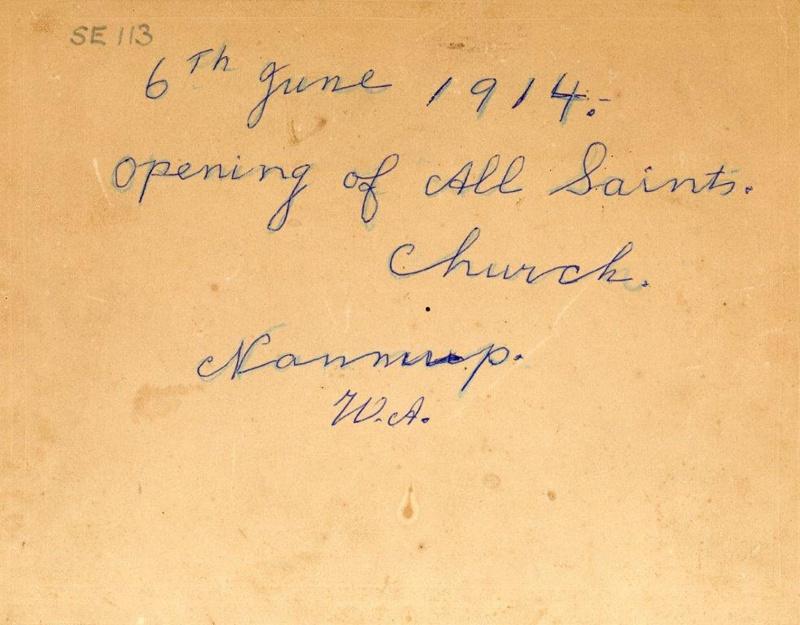 SE 113
6Th June 1914:-
Opening of All Saints.
Church.
Nannup.
W.A.